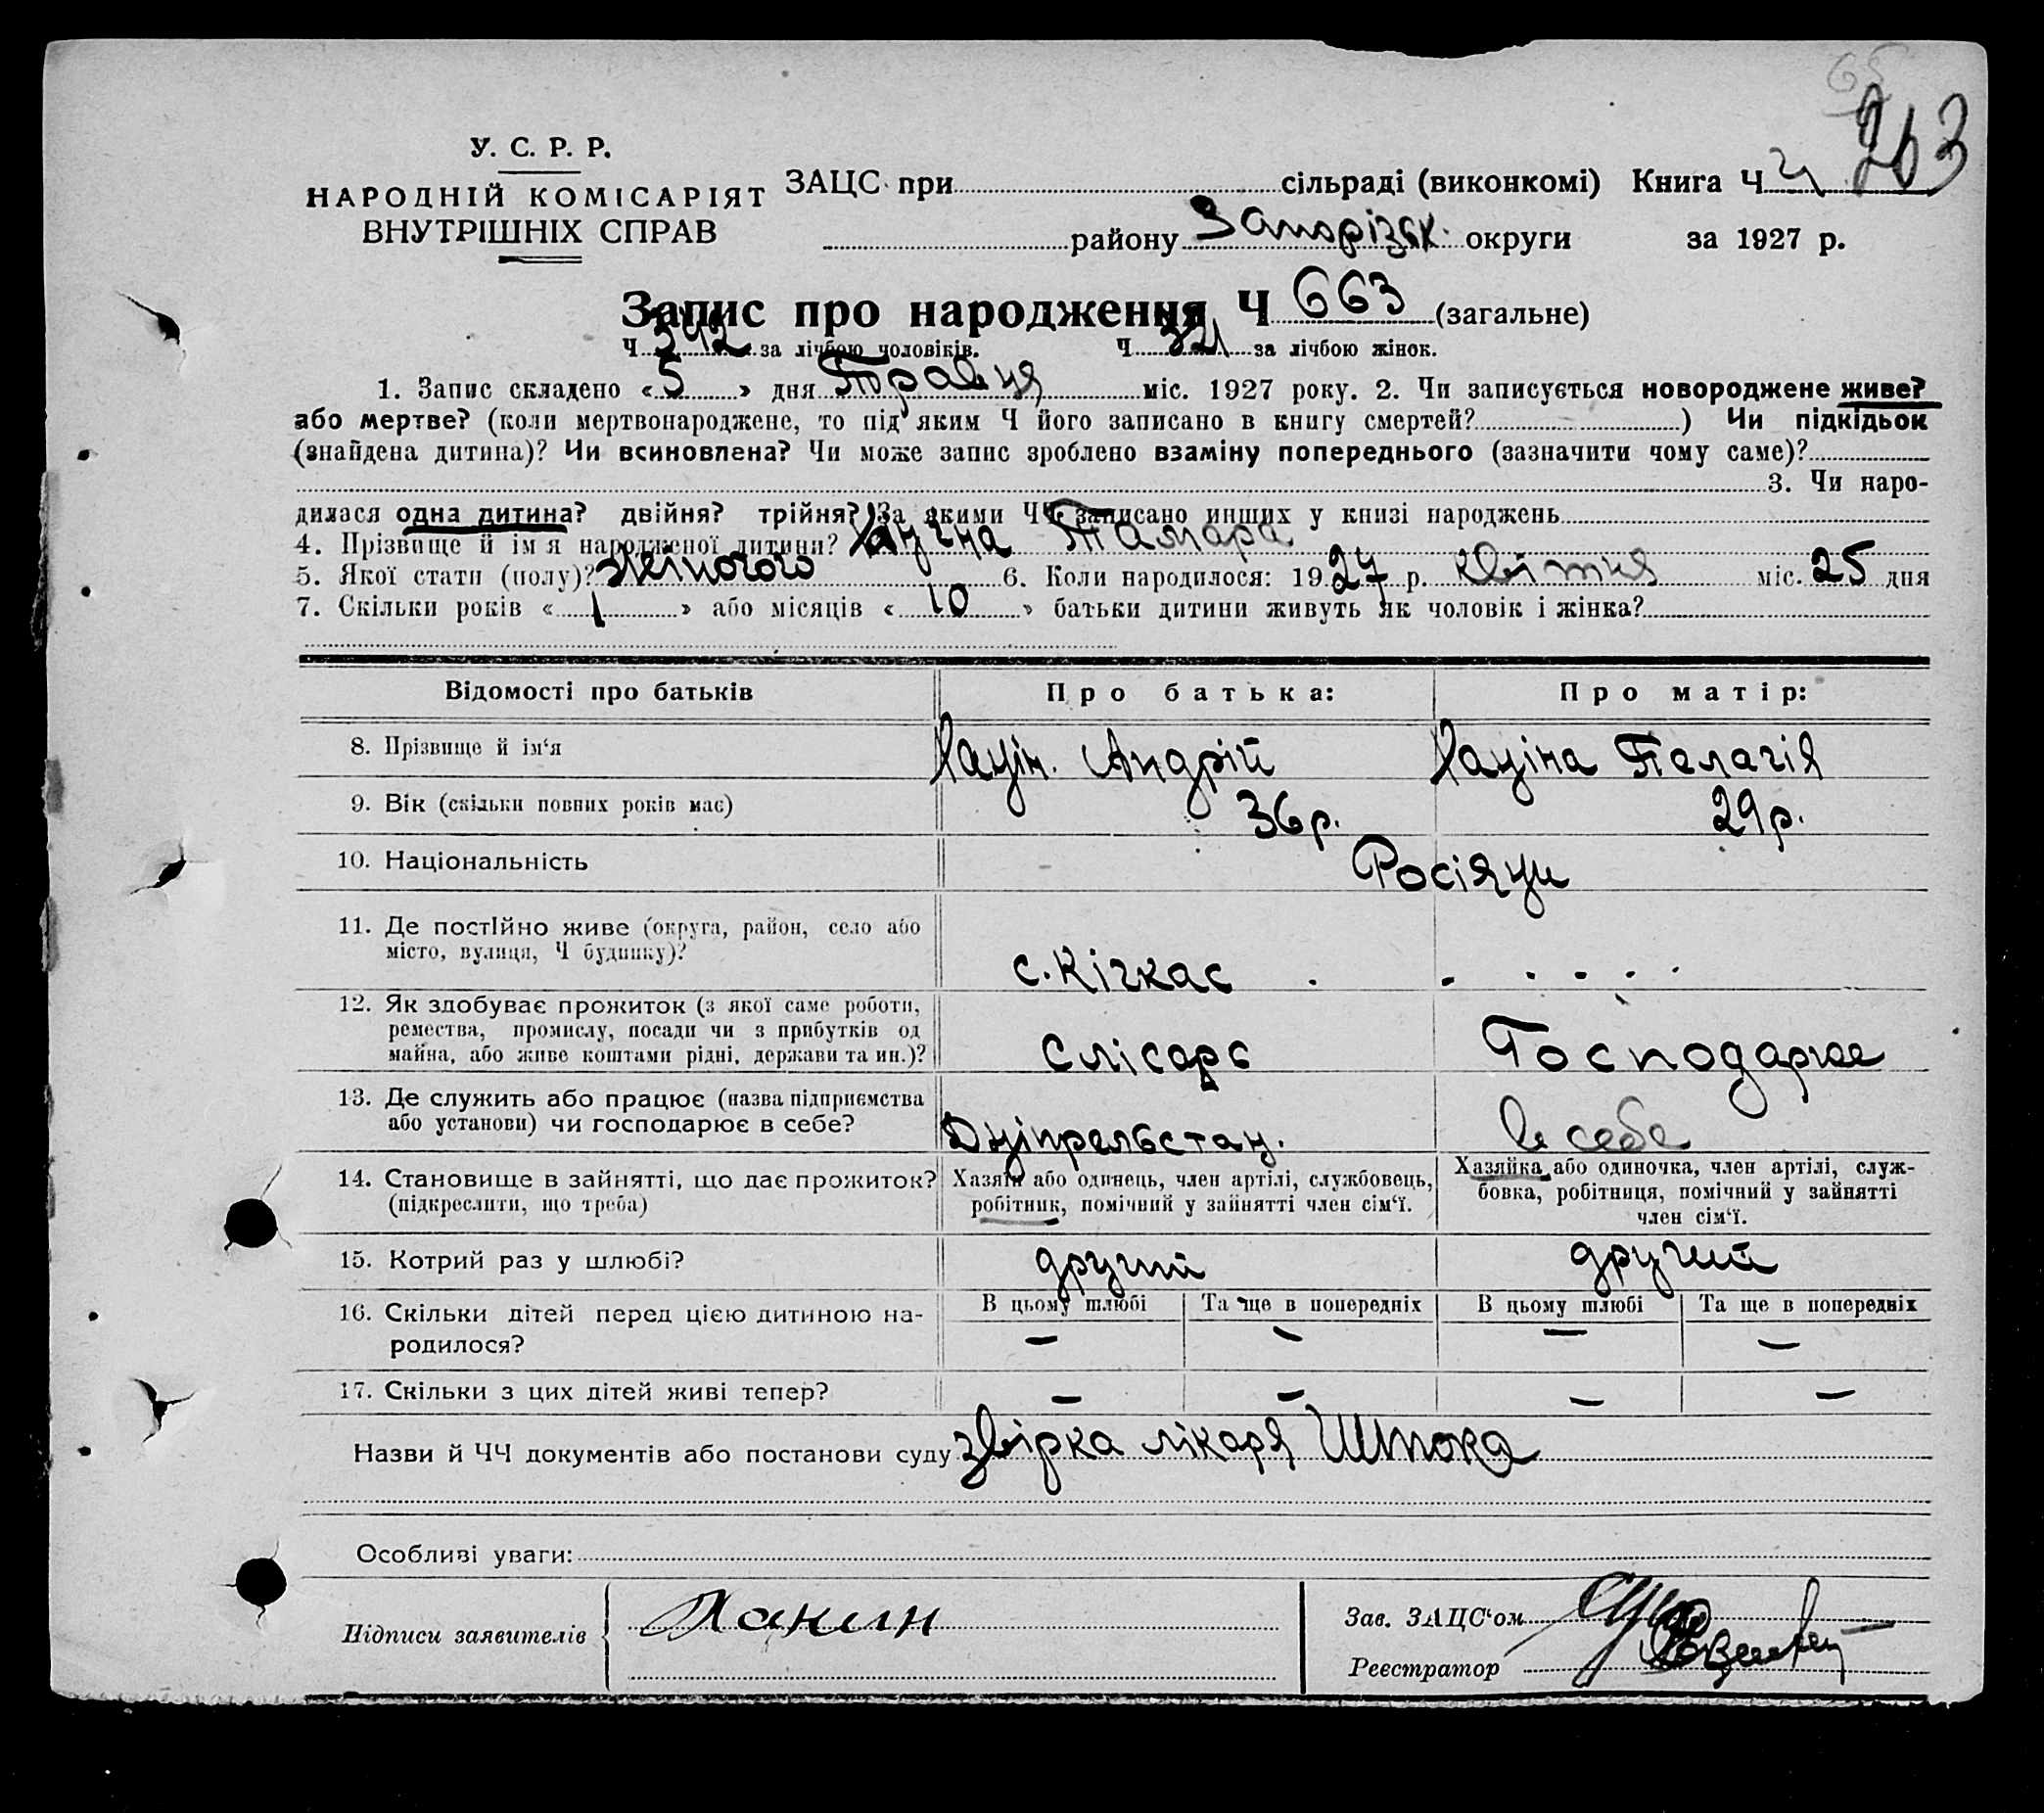 263
У. С. Р. Р.
НАРОДНІЙ КОМІСАРІЯТ
ВНУТРІШНІХ СПРАВ
ЗАЦС при сільраді (виконкомі) Книга Ч
району Запорізьк. округи за 1927 р.
Запис про народження Ч 663 (загальне)
Ч 342 за лічбою чоловіків. Ч 321 за лічбою жінок.
1. Запис складено «5» дня Травня міс. 1927 року. 2. Чи записується новороджене живе?
або мертве? (коли мертвонароджене, то під яким Ч його записано в книгу смертей? ) Чи підкідьок
(знайдена дитина)? Чи всиновлена? Чи може запис зроблено взаміну попереднього (зазначити чому саме)?
3. Чи наро-
дилася одна дитина? двійня? трійня? За якими ЧЧ записано инших у книзі народжень
4. Прізвище й ім'я народженої дитини? Тамара
5. Якої стати (полу)? жіночого 6. Коли народилося: 1927 р. квітня міс. 25 дня
7. Скільки років «1» або місяців «10» батьки дитини живуть як чоловік і жінка?
Відомості про батьків Про батька: Про матір:
8. Прізвище й ім'я Андрій Пелагія
9. Вік (скільки повних років має) 36 р. 29 р.
10. Національність Росіяни
11. Де постійно живе (округа, район, село або
місто, вулиця, Ч будинку)? с. Кічкас
12. Як здобуває прожиток (з якої саме роботи,
ремества, промислу, посади чи з прибутків од
майна, або живе коштами рідні, держави та ин.)? Слісарь Господарює
13. Де служить або працює (назва підприємства
або установи) чи господарює в себе? Дніпрельстан. в себе
14. Становище в зайнятті, що дає прожиток?
(підкреслити, що треба)
Хазяїн або одинець, член артілі, службовець,
робітник, помічний у зайнятті член сім'ї.
Хазяйка або одиночка, член артілі, служ-
бовка, робітниця, помічний у зайнятті
член сім'ї.
15. Котрий раз у шлюбі? другий другий
16. Скільки дітей перед цією дитиною на-
родилося?
В цьому шлюбі Та ще в попередніх В цьому шлюбі Та ще в попередніх
— — — —
17. Скільки з цих дітей живі тепер? — — — —
Назви й ЧЧ документів або постанови суду звірка лікаря Штока
Особливі уваги:
Підписи заявителів
Зав. ЗАЦС'ом
Реєстратор